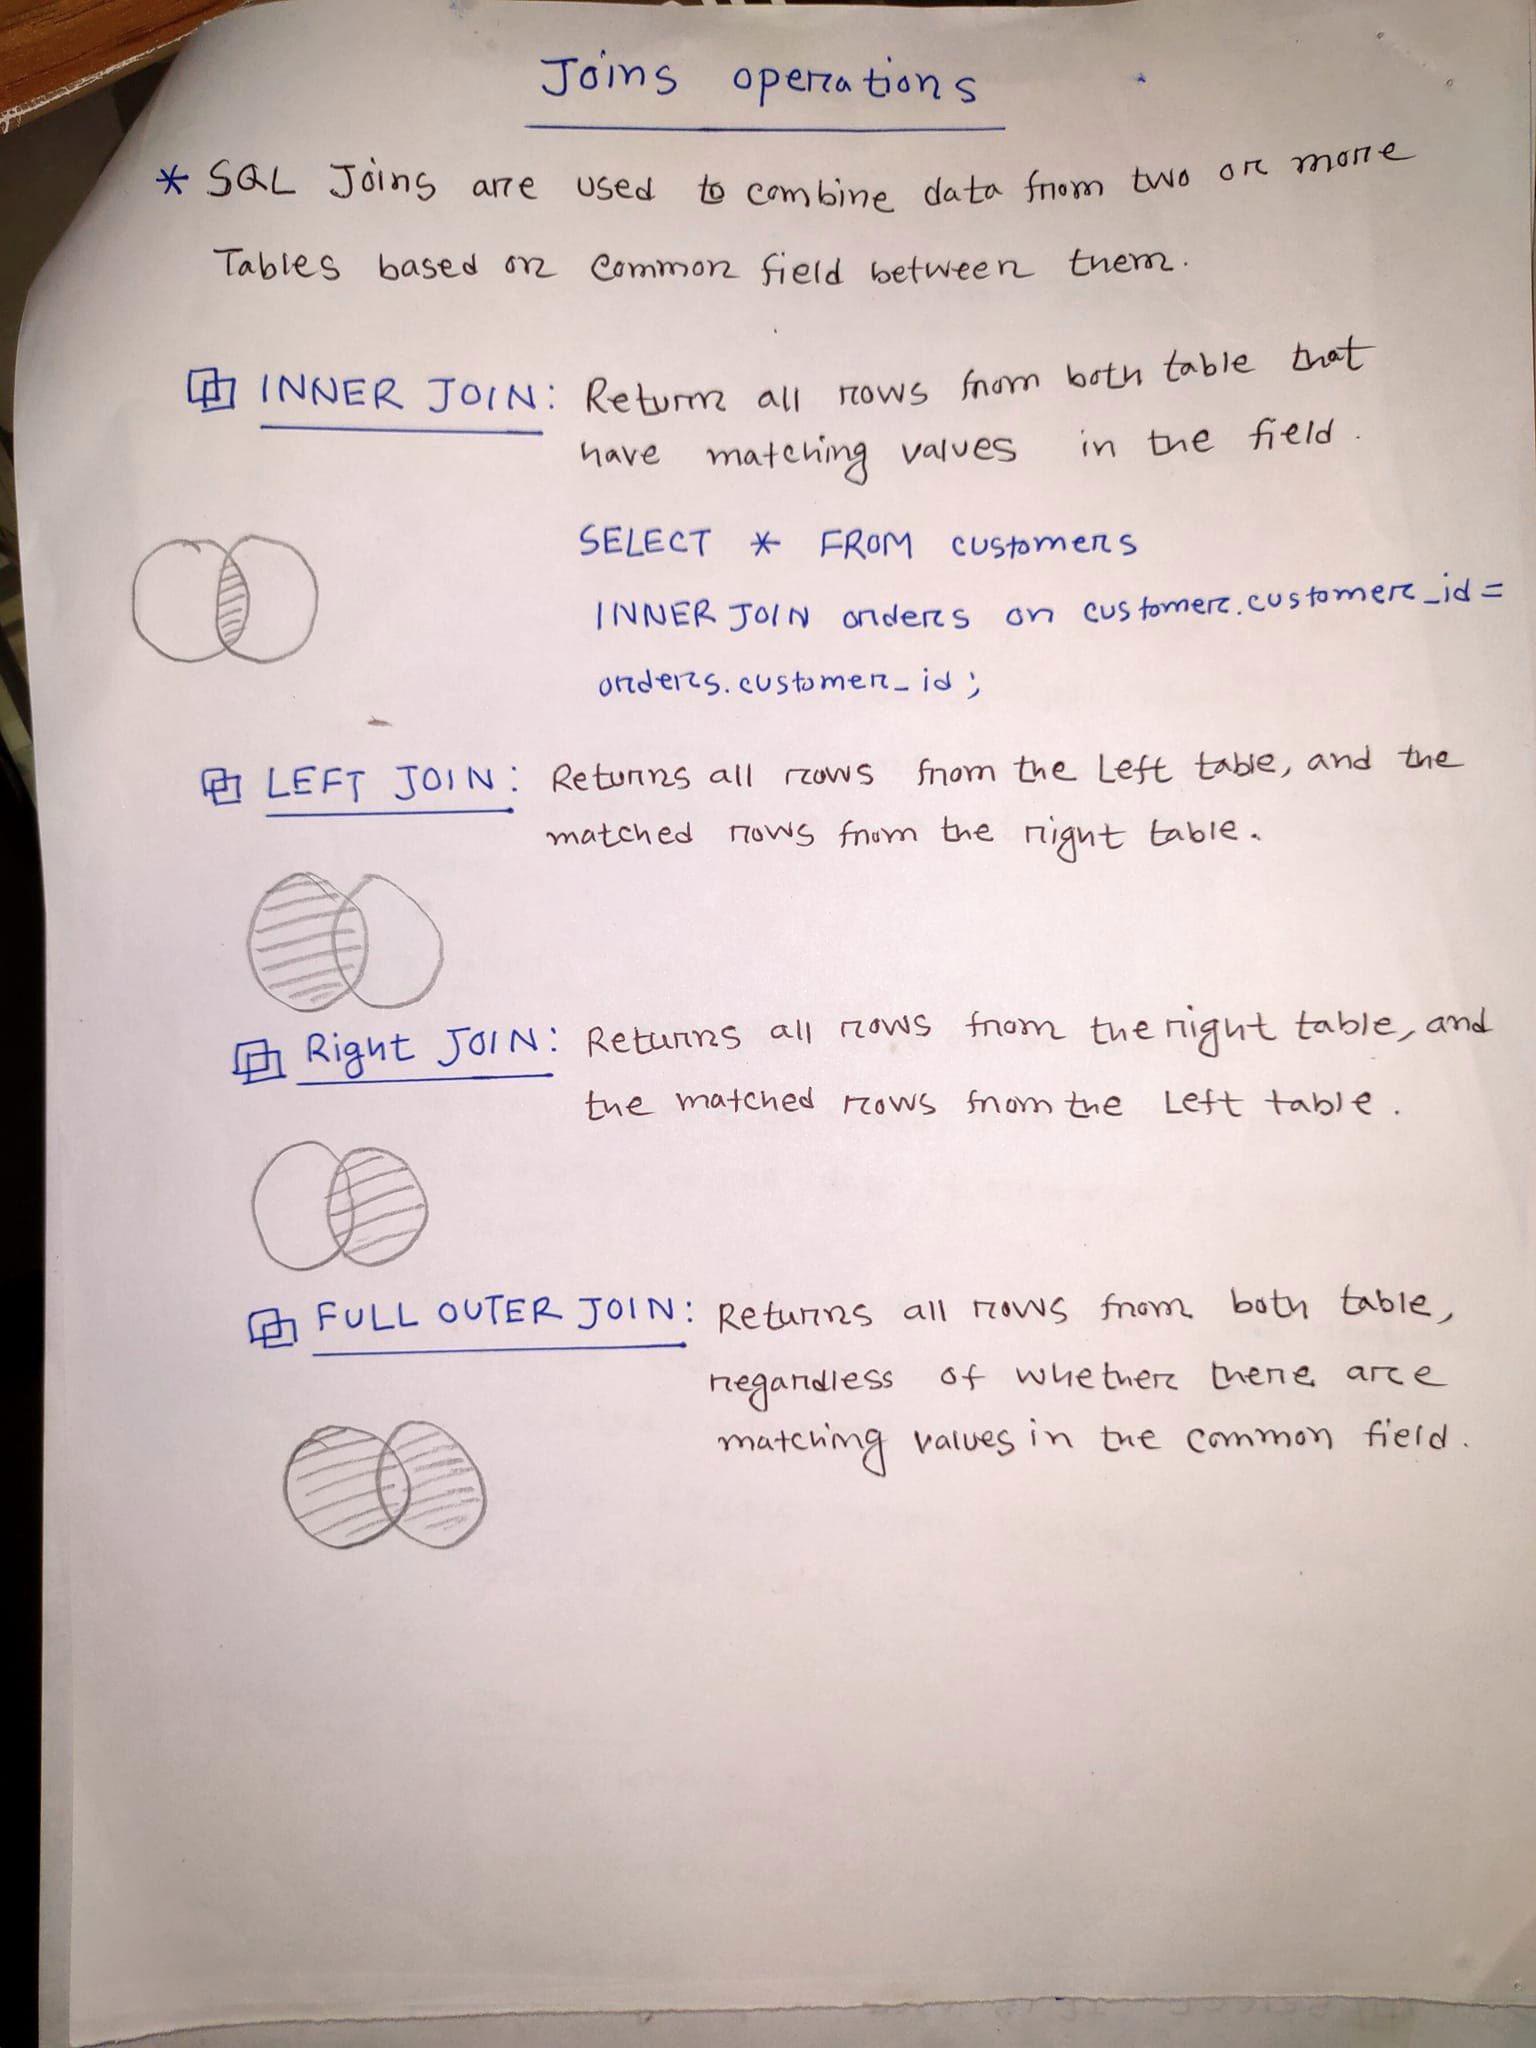 Joins operations
* SQL Joins are used to combine data from two or more
Tables based on common field between them.
INNER JOIN: Return all rows from both table that
have matching values in the field.
SELECT * FROM customers
INNER JOIN orders on customer.customer_id =
orders.customer_id;
LEFT JOIN: Returns all rows from the Left table, and the
matched rows from the right table.
Right JOIN: Returns all rows from the right table, and
the matched rows from the Left table.
FULL OUTER JOIN: Returns all rows from both table,
regardless of whether there are
matching values in the common field.